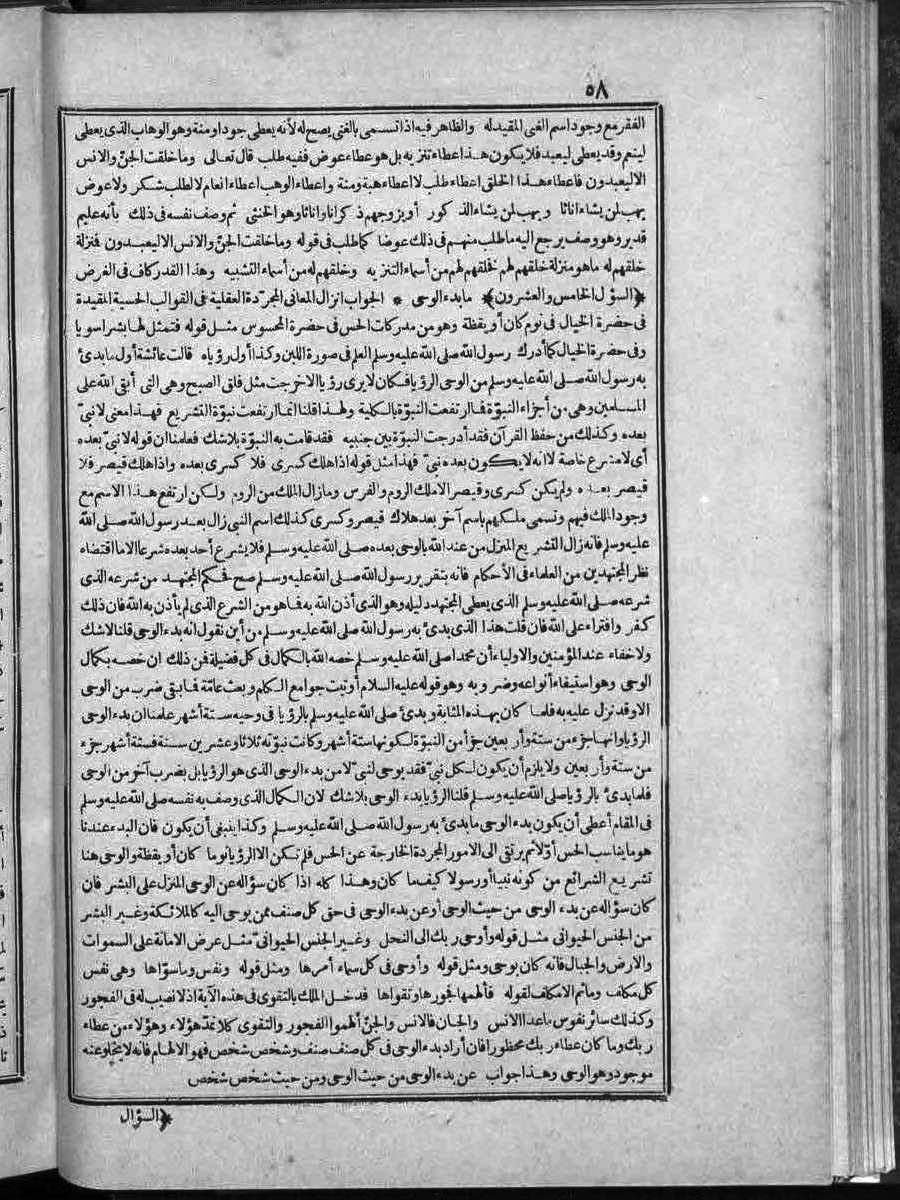 ٥٨
الفقر مع وجود اسم الغنى المقيد له والظاهر فيه اذا تسمى بالغنى يصح له لأنه يعطى جودا ومنة وهو الوهاب الذى يعطى
لينعم وقد يعطى ليعبد فلا يكون هذا عطاء تنزيه بل هو عطاء عوض ففيه طلب قال تعالى وما خلقت الجنّ والانس
الا ليعبدون فاعطاء هذا الخلق اعطاء طلب لا اعطاء هبة ومنة واعطاء الوهب اعطاء انعام لا لطلب شكر ولا عوض
يهب لمن يشاء اناثا ويهب لمن يشاء الذكور أو يزوجهم ذكرانا واناثا وهو الخنثى ثم وصف نفسه فى ذلك بأنه عليم
قدير وهو وصف يرجع اليه ما طلب منهم فى ذلك عوضا كما طلب فى قوله وما خلقت الجنّ والانس الا ليعبدون فنزلة
خلقهم له ماهو منزلة خلقهم لهم خلقهم لهم من أسماء التنزيه وخلقهم له من أسماء التشبيه وهذا القدر كاف فى الغرض
﴿السؤال الخامس والعشرون﴾ ما بدء الوحى * الجواب انزال المعانى المجرّدة العقلية فى القوالب الحسية المقيدة
فى حضرة الخيال فى نوم كان أو يقظة وهو من مدركات الحس فى حضرة المحسوس مثل قوله فتمثل لها بشرا سويا
وفى حضرة الخيال كما أدرك رسول الله صلى الله عليه وسلم العلم فى صورة اللبن وكذا أول رؤياه قالت عائشة أول ما بدئ
به رسول الله صلى الله عليه وسلم من الوحى الرؤيا فكان لا يرى رؤيا الاخرجت مثل فلق الصبح وهى التى أبقى الله على
المسلمين وهى من أجزاء النبوّة فما ارتفعت النبوّة بالكلية ولهذا قلنا انما ارتفعت نبوّة التشريع فهذا معنى لا نبىّ
بعده وكذلك من حفظ القرآن فقد أدرجت النبوّة بين جنبيه فقد قامت به النبوّة بلا شك فعلمنا ان قوله لا نبىّ بعده
أى لا مشرع خاصة لا انه لا يكون بعده نبىّ فهذا مثل قوله اذا هلك كسرى فلا كسرى بعده واذا هلك قيصر فلا
قيصر بعده ولم يكن كسرى وقيصر الا ملك الروم والفرس وما زال الملك من الروم ولكن ارتفع هذا الاسم مع
وجود الملك فيهم وتسمى ملكهم باسم آخر بعد هلاك قيصر وكسرى كذلك اسم النبى زال بعد رسول الله صلى الله
عليه وسلم فانه زال التشريع المنزل من عند الله بالوحى بعده صلى الله عليه وسلم فلا يشرع أحد بعده شرعا الا ما اقتضاه
نظر المجتهدين من العلماء فى الأحكام فانه بتقرير رسول الله صلى الله عليه وسلم صح فحكم المجتهد من شرعه الذى
شرعه صلى الله عليه وسلم الذى يعطى المجتهد دليله وهو الذى أذن الله به فما هو من الشرع الذى لم يأذن به الله فان ذلك
كفر وافتراء على الله فان قلت هذا الذى بدئ به رسول الله صلى الله عليه وسلم من أين نقول انه بدء الوحى قلنا لاشك
ولا خفاء عند المؤمنين والاولياء أن محمدا صلى الله عليه وسلم خصه الله بالكمال فى كل فضيلة فن ذلك ان خصه بكمال
الوحى وهو استيفاء أنواعه وضروبه وهو قوله عليه السلام أوتيت جوامع الكلم وبعث عامّة فما بقى ضرب من الوحى
الا وقد نزل عليه به فلما كان بهذه المثابة وبدئ صلى الله عليه وسلم بالرؤيا فى وحيه ستة أشهر علمنا ان بدء الوحى
الرؤيا وانها جزء من ستة وأربعين جزأ من النبوّة لكونها ستة أشهر وكانت نبوّته ثلاثا وعشرين سنة فستة أشهر جزء
من ستة وأربعين ولا يلزم أن يكون لكل نبىّ فقد يوحى لنبىّ لا من بدء الوحى الذى هو الرؤيا بل بضرب آخر من الوحى
فلما بدئ بالرؤيا صلى الله عليه وسلم قلنا الرؤيا بدء الوحى بلا شك لان الكمال الذى وصف به نفسه صلى الله عليه وسلم
فى المقام أعطى أن يكون بدء الوحى ما بدئ به رسول الله صلى الله عليه وسلم وكذا ينبغى أن يكون فان البدء عندنا
هو ما يناسب الحس أوّلا ثم يرتقى الى الامور المجردة الخارجة عن الحس فلم تكن الا الرؤيا نوما كان أو يقظة والوحى هنا
تشريع الشرائع من كونه نبيا أو رسولا كيف ما كان وهذا كله اذا كان سؤاله عن الوحى المنزل على البشر فان
كان سؤاله عن بدء الوحى من حيث الوحى أو عن بدء الوحى فى حق كل صنف ممن يوحى اليه كالملائكة وغير البشر
من الجنس الحيوانى مثل قوله وأوحى ربك الى النحل وغير الجنس الحيوانىّ مثل عرض الامانة على السموات
والارض والجبال فانه كان بوحى ومثل قوله وأوحى فى كل سماء أمرها ومثل قوله ونفس وما سوّاها وهى نفس
كل مكلف وما ثم الا مكلف لقوله فألهمها فجورها وتقواها فدخل الملك بالتقوى فى هذه الآية اذ لا نصيب له فى الفجور
وكذلك سائر نفوس ماعدا الانس والجان فالانس والجنّ ألهموا الفجور والتقوى كلا نمدّ هؤلاء وهؤلاء من عطاء
ربك وما كان عطاء ربك محظورا فان أراد بدء الوحى فى كل صنف صنف وشخص شخص فهو الالهام فانه لا يخلو عنه
موجود وهو الوحى وهذا جواب عن بدء الوحى من حيث الوحى ومن حيث شخص شخص
﴿السؤال